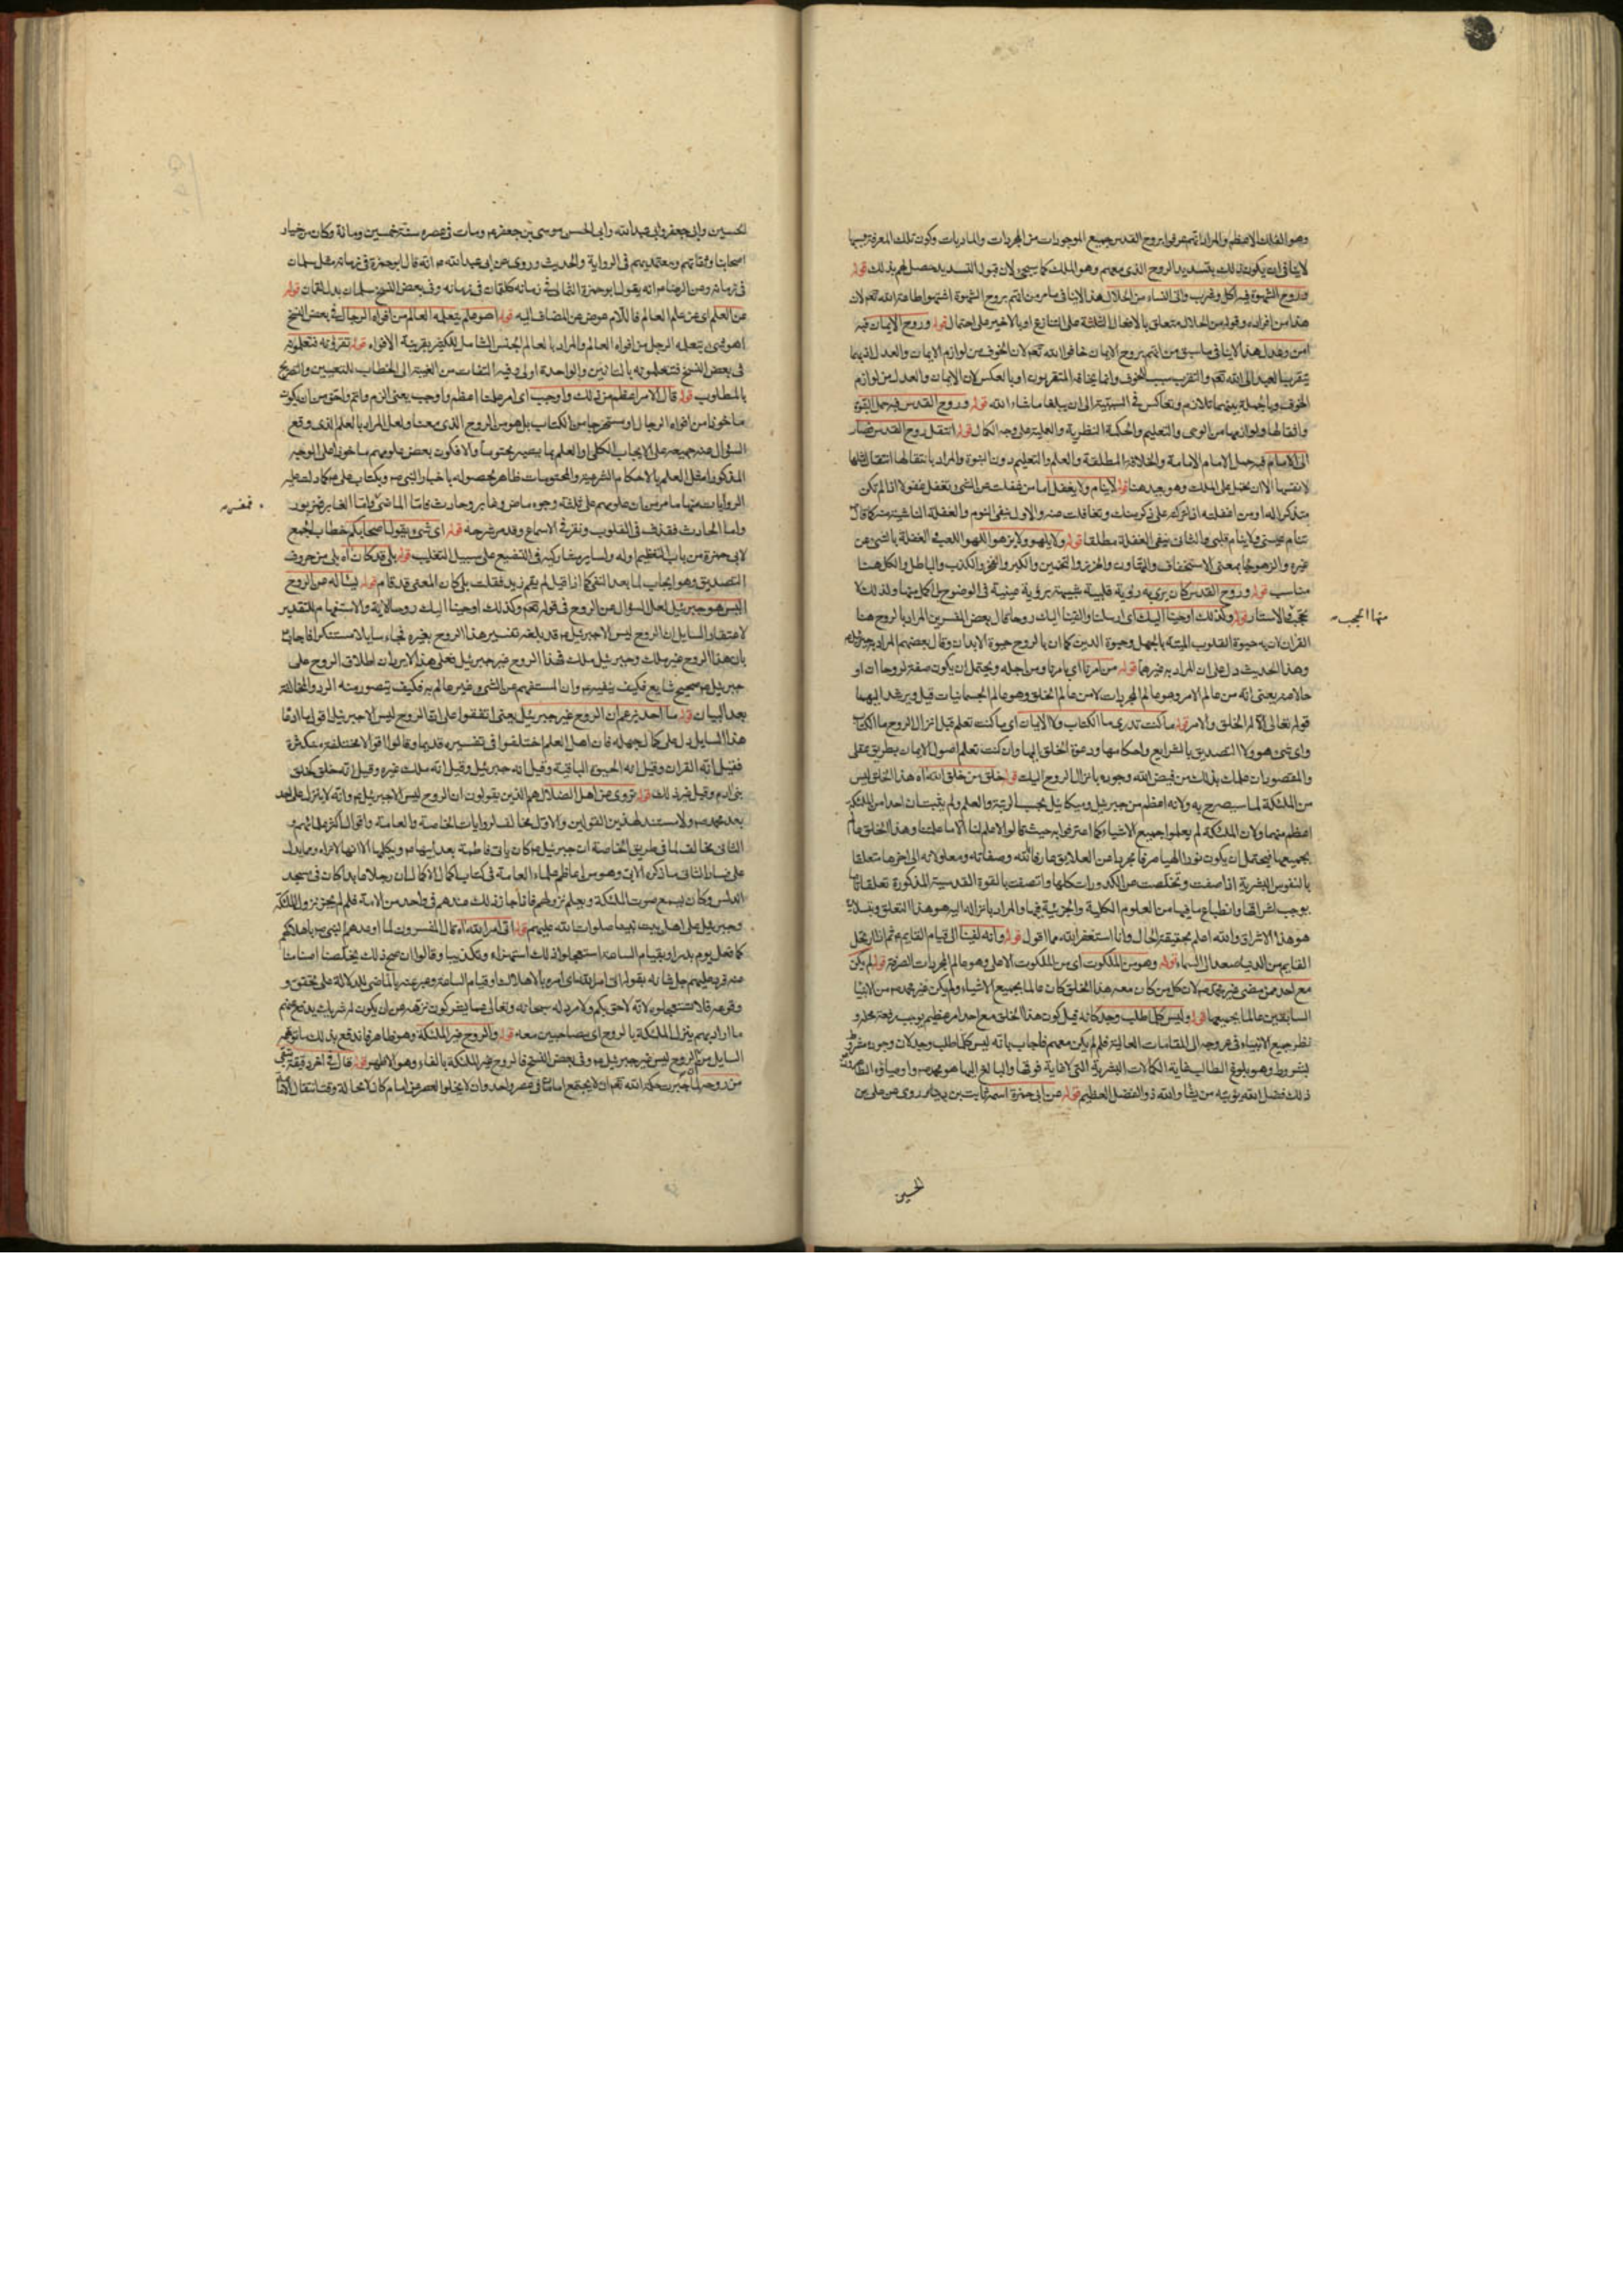 وهو الفلك الاعظم والمراد انهم عرفوا بروح القدس جميع الموجودات من المجردات والماديات وكون تلك المعرفة بسببها
لاينافى ان يكون ذلك بتسديد الروح الذى معهم وهو الملك كما سيجئ لان قبول التسديد يحصل لهم بذلك قوله
وروح الشهوة فبه اكل وشرب واتى النساء من الحلال هذا لاينافى ما مر من انهم بروح الشهوة اشتهوا طاعة الله تعه لان
هذا من افراده وقوله من الحلال متعلق بالافعال الثلثة على التنازع او بالاخير على احتمال قوله وروح الايمان فبه
امن وعدل هذا لاينافى ما سبق من انهم بروح الايمان خافوا الله تعه لان الخوف من لوازم الايمان والعدل اذ بهما
يتقرب العبد الى الله تعه والتقرب سبب للخوف وانما يخافه المتقربون او بالعكس لان الايمان والعدل من لوازم
الخوف وبالجملة بينهما تلازم وتعاكس فى السببية الى ان يبلغا ما شاء الله قوله وروح القدس فبه حمل النبوة
واثقالها ولوازمها من الوحى والتعليم والحكمة النظرية والعملية على وجه الكمال قوله انتقل روح القدس فصار
الى الامام فبه حمل الامام الامامة والخلافة المطلقة والعلم والتعليم دون النبوة والمراد بانتقالها انتقال مثلها
لا نفسها الا ان يحمل على الملك وهو بعيد هنا قوله لاينام ولا يغفل اما من غفلت عن الشئ تغفل غفولا اذا لم تكن
متذكرا له او من اغفلته اذا تركته على ذكر منك وتغافلت عنه والاول ينفى النوم والغفلة الناشية منه كما قال
تنام عينى ولاينام قلبى والثانى ينفى الغفلة مطلقا قوله ولايلهو ولايزهو اللهو اللعب والغفلة بالشئ عن
غيره والزهو يجئ بمعنى الاستخفاف والتهاون والحزر والتخمين والكبر والفخر والكذب والباطل والكل هنا
مناسب قوله وروح القدس كان يرى به رؤية قلبية شبيهة برؤية عينية فى الوضوح بل اكمل منها ولذلك لا
تحجب الاستار قوله وكذلك اوحينا اليك اى ارسلنا والقينا اليك روحا قال بعض المفسرين المراد بالروح هنا
منها الحجب
القران لان به حيوة القلوب الميتة بالجهل وحيوة الدين كما ان بالروح حيوة الابدان وقال بعضهم المراد به جبرئيل
وهذا الحديث دل على ان المراد به غيرهما قوله من امرنا اى بامرنا ومن اجله ويحتمل ان يكون صفة لروحا او
حالا عنه يعنى انه من عالم الامر وهو عالم المجردات لا من عالم الخلق وهو عالم الجسمانيات قيل ويرشد اليهما
قوله تعالى الا له الخلق والامر قوله ما كنت تدرى ما الكتاب ولا الايمان اى ما كنت تعلم قبل انزال الروح ما الكتاب
واى شئ هو ولا التصديق بالشرايع واحكامها ودعوة الخلق اليها وان كنت تعلم اصول الايمان بطريق عقلى
والمقصود ان علمك بذلك من فيض الله وجوده بانزال الروح اليك قوله خلق من خلق الله اه هذا الخلق ليس
من الملئكة لما سيصرح به ولانه اعظم من جبرئيل وميكائيل بحسب الرتبة والعلم ولم يثبت ان احدا من الملئكة
اعظم منهما ولان الملئكة لم يعلموا جميع الاشياء كما اعترفوا به حيث قالوا لا علم لنا الا ما علمتنا وهذا الخلق عالم
بجميعها فيحتمل ان يكون نورا الهيا صرفا مجردا عن العلايق عارفا بالله وصفاته ومعلولاته الى اخرها متعلقا
بالنفوس البشرية اذا صفت وتخلصت عن الكدورات كلها واتصفت بالقوة القدسية المذكورة تعلقا تاما
يوجب اشراقها وانطباع ما فيها من العلوم الكلية والجزئية فيها والمراد بانزاله اليه هو هذا التعلق
هو هذا الاشراق والله اعلم بحقيقة الحال وانا استغفر الله مما اقول قوله وانه لفينا الى قيام القايم عه ثم اذا رتحل
القايم من الدنيا صعد الى السماء قوله وهو من الملكوت اى من الملكوت الاعلى وهو عالم المجردات الصرفة قوله لم يكن
مع احد ممن مضى غير محمد صه لان كل من كان معه هذا الخلق كان عالما بجميع الاشياء ولم يكن غير محمد صه من الانبيا
السابقين عالما بجميعها قوله وليس كل ما طلب وجد كانه قيل كون هذا الخلق مع احد امر عظيم يوجب رفعة محله و
نظر جميع الانبياء فى عروجه الى المقامات العالية فلم لم يكن معهم فاجاب بانه ليس كلما طلب وجد لان وجوده مشروط
بشروط وهو بلوغ الطالب غاية الكمالات البشرية التى لا غاية فوقها والبالغ اليها هو محمد صه واوصياؤه
ذلك فضل الله يؤتيه من يشاء والله ذو الفضل العظيم قوله عن ابى حمزة اسمه ثابت بن دينار روى عن على بن
الحسين
الحسين وابى جعفر وابى عبد الله وابى الحسن موسى بن جعفر عه ومات فى عصره سنة خمسين ومائة وكان من خيار
اصحابنا وثقاتهم ومعتمديهم فى الرواية والحديث وروى عن ابى عبد الله عه انه قال ابو حمزة فى زمانه مثل سلمان
فى زمانه وعن الرضا عه انه يقول ابو حمزة الثمالى فى زمانه كلقمان فى زمانه وفى بعض النسخ سلمان بدل لقمان قوله
عن العلم اى عن علم العالم فاللام عوض عن المضاف اليه قوله اهو علم يتعلمه العالم من افواه الرجال فى بعض النسخ
اهو شئ يتعلمه الرجل من افواه العالم والمراد بالعالم الجنس الشامل للكثير بقرينة الافواه قوله تقرؤنه فتعلمون
فى بعض النسخ فتتعلمونه بالتائين والواحدة اولى وفيه التفات من الغيبة الى الخطاب للتعيين والتصريح
بالمطلوب قوله قال الامر اعظم من ذلك واوجب اى امر علمنا اعظم واوجب يعنى الزم واتم واحق من ان يكون
ماخوذا من افواه الرجال او مستخرجا من الكتاب بل هو من الروح الذى معنا ولعل المراد بالعلم الذى وقع
السؤال عنه جميعه على الايجاب الكلى او العلم بما يصير محتوما والا فكون بعض علومهم ماخوذا على الوجه
المذكور مثل العلم بالاحكام الشرعية والمحتومات ظاهر لحصوله باخبار النبى صه وبكتاب على عه كما دلت عليه
الروايات منها ما مر من ان علومهم على ثلثة وجوه ماض وغابر وحادث فاما الماضى واما الغابر فمزبور
فمفسر صه
واما الحادث فقذف فى القلوب ونقر فى الاسماع وقد مر شرحه قوله اى شئ يقول اصحابكم خطاب الجمع
لابى حمزة من باب التعظيم او له ولساير مشاركيه فى التشيع على سبيل التغليب قوله بلى قد كان اه بلى من حروف
التصديق وهو ايجاب لما بعد النفى كما اذا قيل لم يقم زيد فقلت بلى كان المعنى قد قام قوله يسأله عن الروح
اليس هو جبرئيل لعل السؤال عن الروح فى قوله تعه وكذلك اوحينا اليك روحا الاية والاستفهام للتقدير
لاعتقاد السايل ان الروح ليس الا جبرئيل عه قد بلغه تفسير هذا الروح بغيره فجاء سايلا مستنكرا فاجاب
بان هذا الروح غير ملك وجبرئيل ملك فهذا الروح غير جبرئيل فعلى هذا لا يرد ان اطلاق الروح على
جبرئيل عه صحيح شايع فكيف ينفيه وان المستفهم عن الشئ غير عالم به فكيف يتصور منه الرد والمخالفة
بعد البيان قوله ما احد يزعم ان الروح غير جبرئيل يعنى اتفقوا على ان الروح ليس الا جبرئيل اقول ما ادعا
هذا السايل دل على كمال جهله فان اهل العلم اختلفوا فى تفسيره قديما وقالوا اقوالا مختلفة متكثرة
فقيل انه القران وقيل انه الحيوة الباقية وقيل انه جبرئيل وقيل انه ملك غيره وقيل انه خلق كخلق
بنى ادم وقيل غير ذلك قوله تروى عن اهل الضلال هم الذين يقولون ان الروح ليس الا جبرئيل عه وانه لا ينزل على احد
بعد محمد صه ولا مستند لهذين القولين والاول مخالف لروايات الخاصة والعامة واقوال اكثر علمائهم و
الثانى مخالف لما فى طريق الخاصة ان جبرئيل عه كان ياتى فاطمة بعد ابيها صه ويكلمها الا انها لا تراه ومما يدل
على فساد الثانى ما ذكره الابى وهو من اعاظم علماء العامة فى كتاب اكمال الاكمال ان رجلا عابدا كان فى مسجد
اندلس وكان يسمع صوت الملئكة ويعلم نزولهم فاذا جاز ذلك عندهم فى واحد من الامة فلم لم يجز نزول الملئكة
وجبرئيل على اهل بيت نبينا صلوات الله عليهم قوله اتى امر الله اه قال المفسرون لما اوعدهم النبى صه باهلاكهم
كما فعل يوم بدر او بقيام الساعة استعجلوا ذلك استهزاء وتكذيبا وقالوا ان صح ذلك يخلصنا اصنامنا
عنه فرد عليهم جل شانه بقوله اتى امر الله اى امره بالاهلاك او قيام الساعة وعبر عنه بالماضى للدلالة على تحققه و
وقوعه فلا تستعجلوه لانه لاحق بكم ولا مرد له سبحانه وتعالى عما يشركون نزهه عن ان يكون له شريك يدفع عنهم
ما اراد بهم ينزل الملئكة بالروح اى مصاحبين معه قوله والروح غير الملئكة وهو ظاهر فاندفع بذلك ما توهم
السايل من ان الروح ليس غير جبرئيل عه وفى بعض النسخ فالروح غير الملئكة بالفاء وهو الاظهر قوله قال فى اخر دقيقة تبقى
من روحه لما جرت حكمة الله تعه ان لا يجتمع امامان فى عصر واحد وان لا يخلو العصر من امام كان لا محالة وقت انتقال